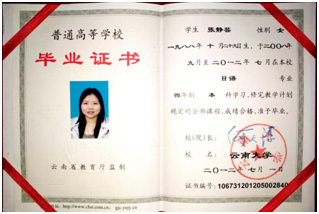 普通高等学校
毕业证书
云南省教育厅监制
学生 张静蓉 性别 女
一九八八年 十 月二十九日生,于二〇〇八年
九月至二〇一二年 七月在本校
日语 专业
四年制 本 科学习,修完教学计划
规定的全部课程,成绩合格,准予毕业。
校(院)长:
校 名: 云南大学
二〇一二年 七月 一日
证书编号: 106731201205002840